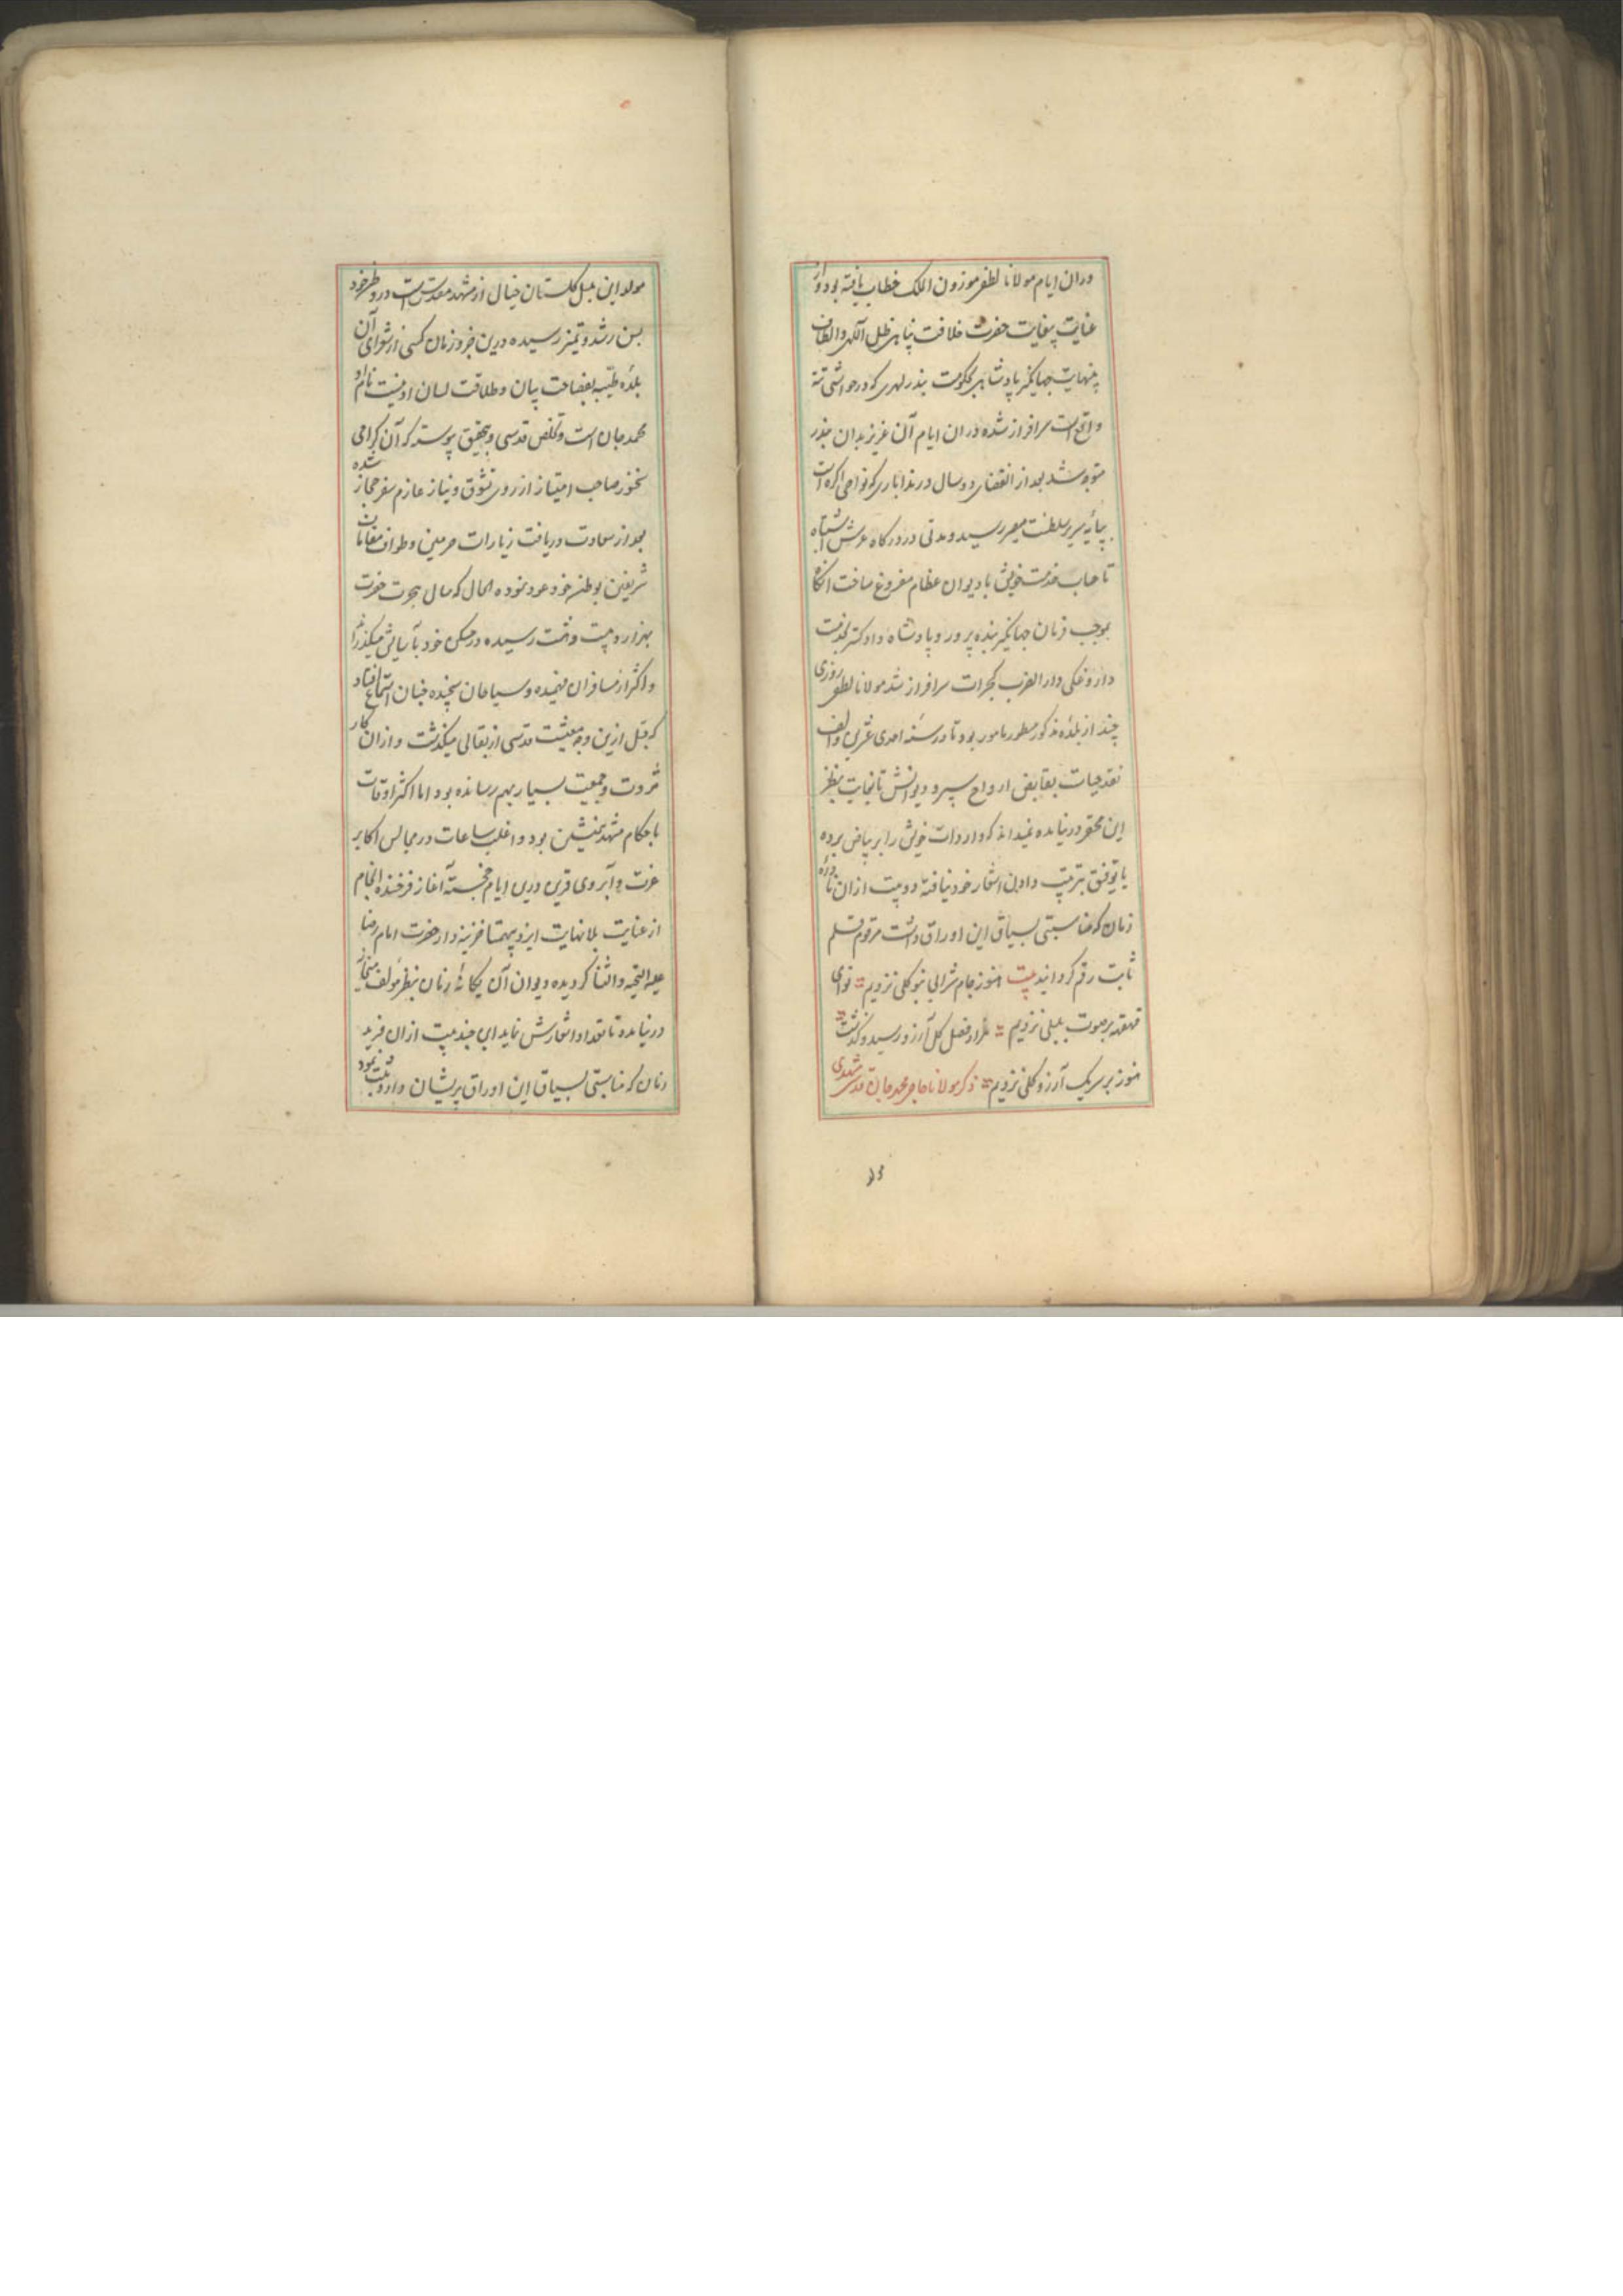 دران ایام مولانا لطفی موزون الملک خطاب یافته بود و از
عنایت بیغایت حضرت خلافت پناهی ظل آلهی و الطاف
بینهایت جهانگیر پادشاهی بحکومت بندر لهری که در حواشی تته
واقع است سرافراز شده دران ایام آن عزیز بدان بندر
متوجه شد بعد از انقضای دو سال در که نواحی اکره است
بپایه سریر سلطنت مصیر رسید و مدتی در درکاه عرش اشتباه
تا حساب خدمت خویش با دیوان عظام مفروغ ساخت انکاه
بموجب فرمان جهانگیر بنده پرور و پادشاه دادکستر بخدمت
داروغکی دار الضرب کجرات سرافراز شد مولانا لطفی روزی
چند از بلده مذکور مسطور مامور بود تا در سنه احدی عشرین و الف
نقد حیات بقابض ارواح سپرد و دیوانش تا غایت بنظر
این محقر درنیامده نمیداند که واردات خویش را بر بیاض برده
یا توفیق بترتیب دادن اشعار خود نیافته دو بیت ازان نادره
زمان که مناسبتی بسیاق این اوراق داشت مرقوم قلم
ثابت رقم کردانید بیت هنوز جام شرابی بنوکلی نزدیم نوای
قهقهه بر صوت بلبلی نزدیم هزار فصل کل آرزو رسید و کذشت
هنوز بر سر یک آرزو کلی نزدیم ذکر مولانا حاجی محمد جان قدسی مشهدی
مولد این بلبل کلستان خیال از مشهد مقدس است در وطن خود
بسن رشد و تمیز رسیده درین جزو زمان کسی از شعرای آن
بلده طیبه بفصاحت بیان و طلاقت لسان او نیست نام او
محمد جان است و تخلص قدسی و بتحقیق پیوسته که آن کرامی
سخنور صاحب امتیاز از روی شوق و نیاز عازم سفر حجاز شده
بعد از سعادت دریافت زیارات حرمین و طواف مقامات
شریفین بوطن خود عود نموده الحال که سال هجرت حضرت
بهزار و بیست و هشت رسیده در مسکن خود بآسایش میکذراند
و اکثر از مسافران فهمیده و سیاحان سنجیده چنان استماع افتاد
که قبل ازین وجه معیشت قدسی از بقالی میکذشت و ازان کار
ثروت و جمعیت بسیار بهم رسانده بود اما اکثر اوقات
با حکام مشهد همنشین بود و اغلب ساعات در مجالس اکابر
عزت و آبروی قرین درین ایام خجسته آغاز فرخنده انجام
از عنایت بلانهایت ایزد بیهمتا خزینه دار حضرت امام رضا
علیه التحیه و الثنا کردیده دیوان آن یکانه زمان بنظر مولف میخانه
درنیامده تا تعداد اشعارش نماید این چند بیت ازان فرید
زمان که مناسبتی بسیاق این اوراق پریشان دارد ثبت نمود